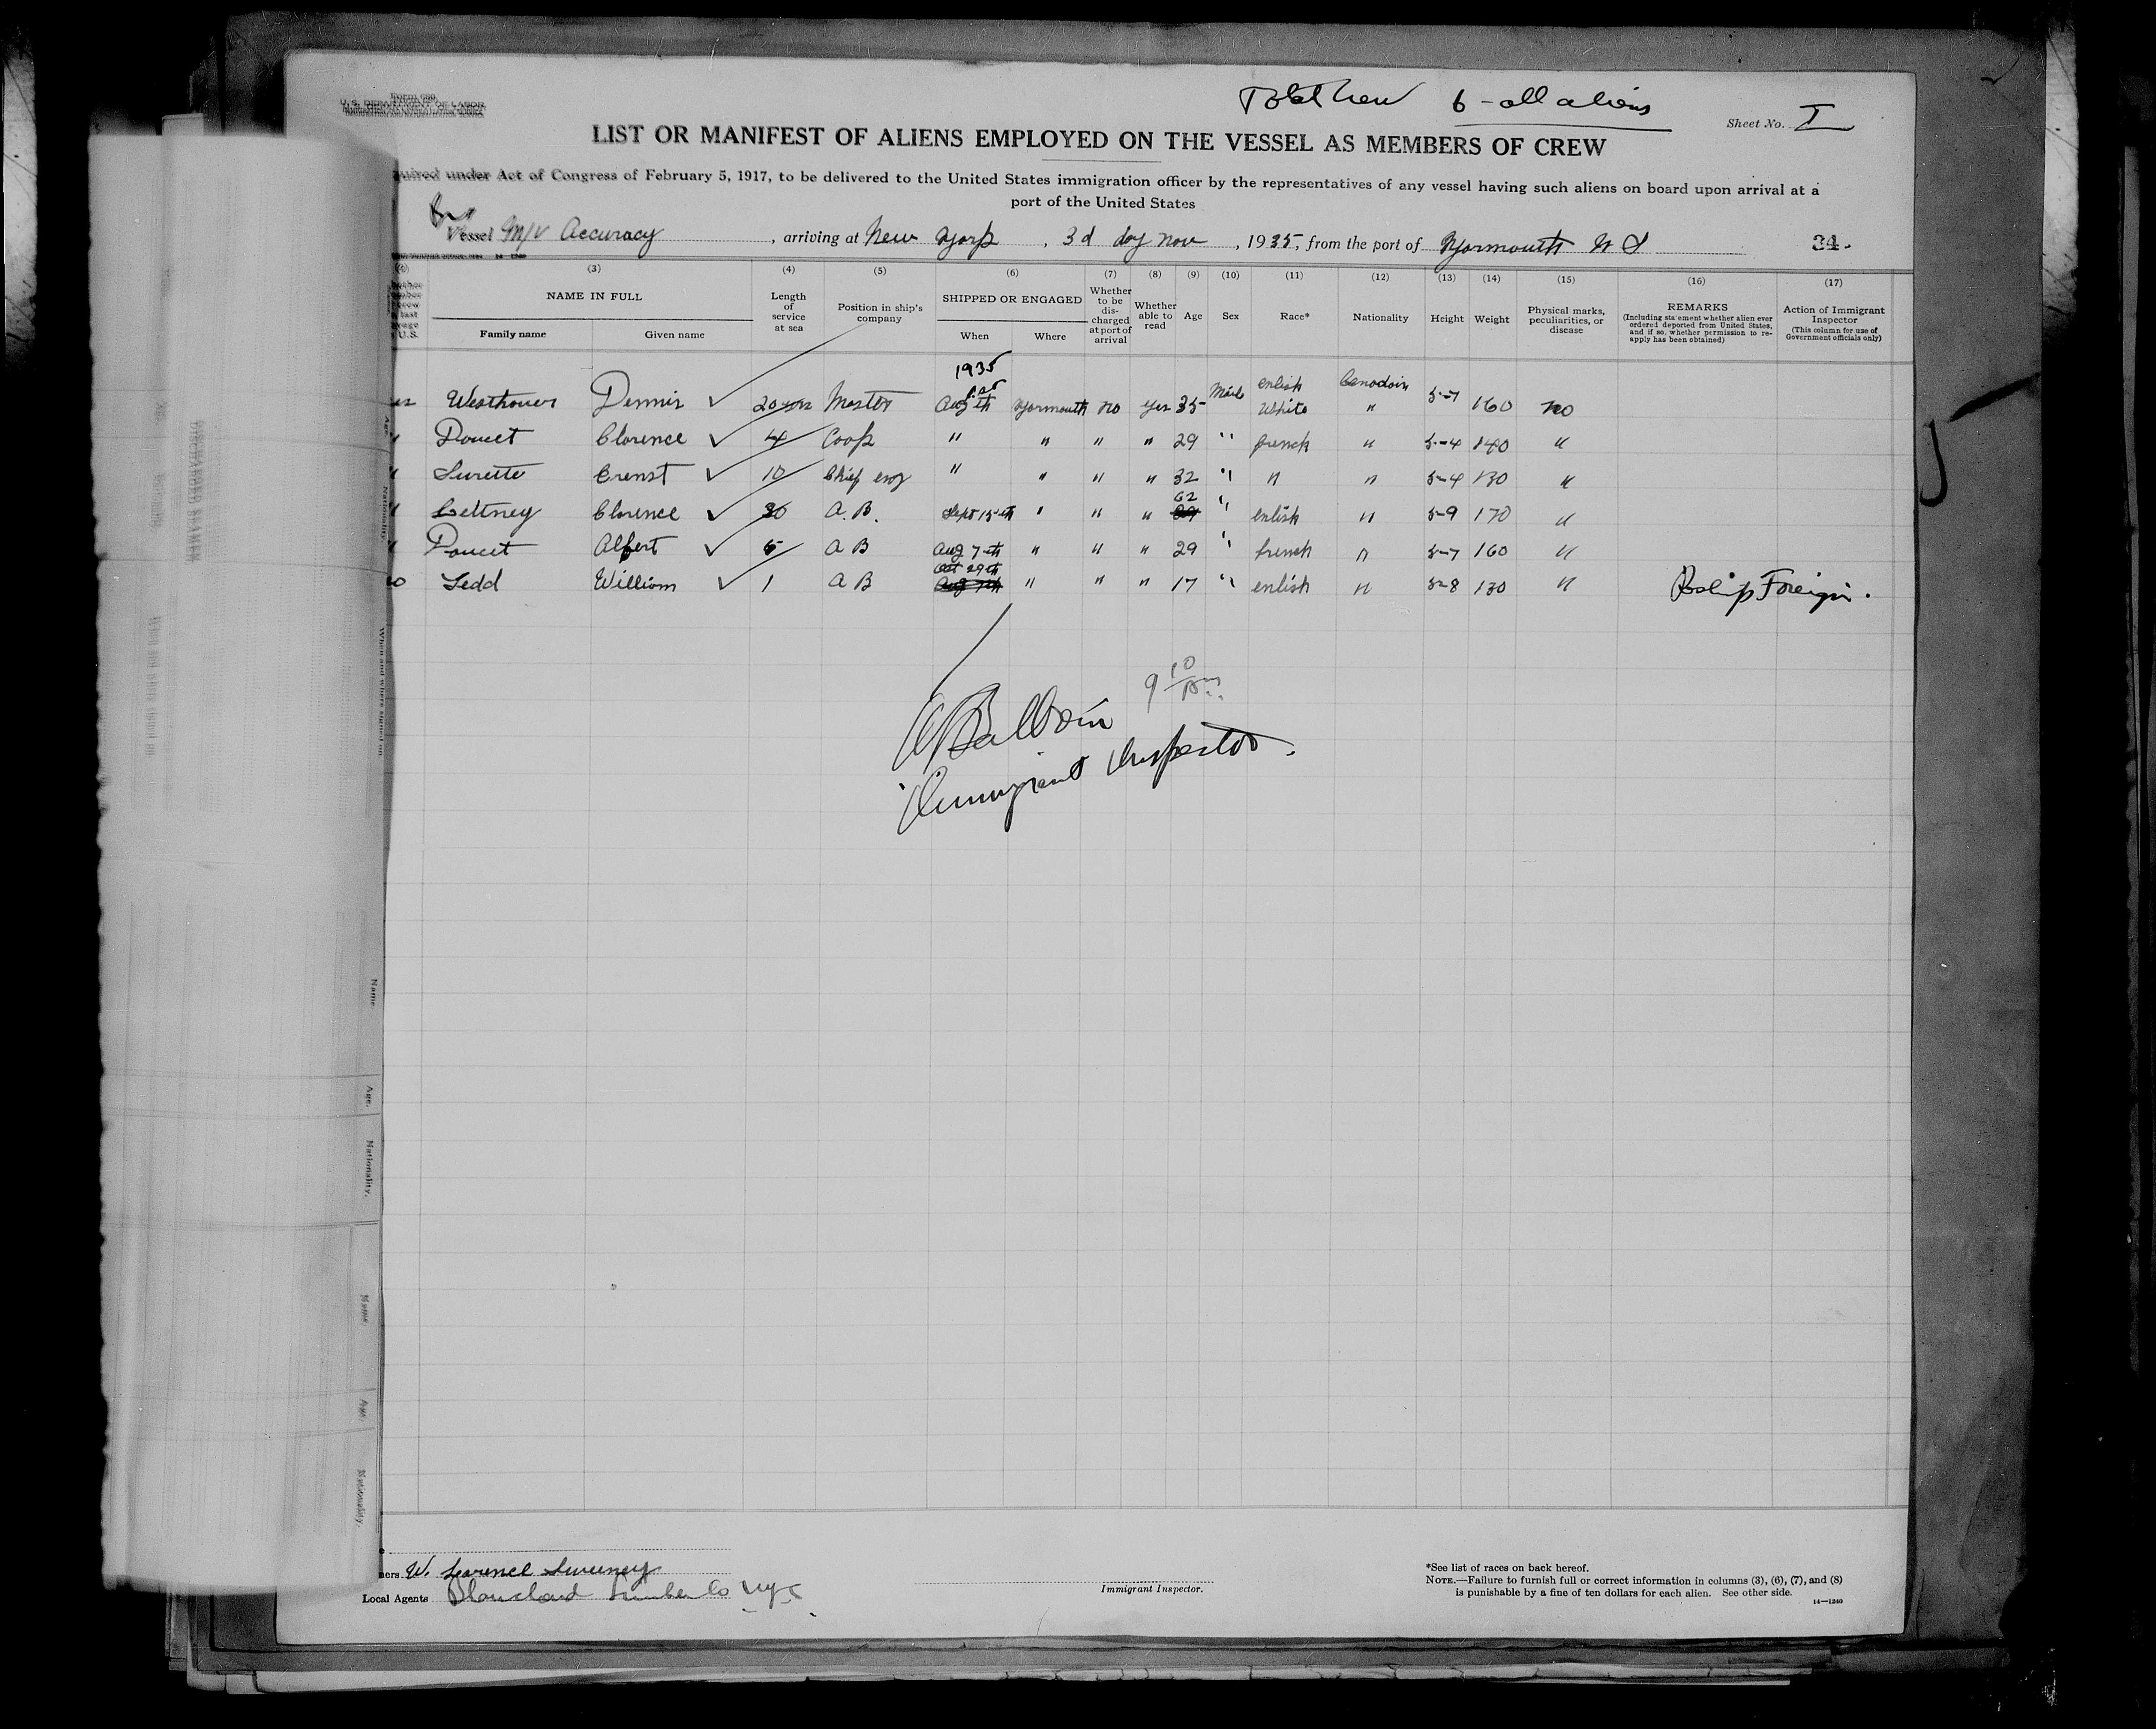 Form 680
U. S. DEPARTMENT OF LABOR
Total Crew 6 - all aliens
Sheet No. I
LIST OR MANIFEST OF ALIENS EMPLOYED ON THE VESSEL AS MEMBERS OF CREW
quired under Act of Congress of February 5, 1917, to be delivered to the United States immigration officer by the representatives of any vessel having such aliens on board upon arrival at a
port of the United States
Br
Vessel M/V Accuracy, arriving at New York, 3d day Nov, 1935, from the port of Yarmouth N S 34.
(3) (4) (5) (6) (7) (8) (9) (10) (11) (12) (13) (14) (15) (16) (17)
NAME IN FULL
Family name Given name
Length of service at sea
Position in ship's company
SHIPPED OR ENGAGED
When Where
Whether to be discharged at port of arrival
Whether able to read
Age
Sex
Race*
Nationality
Height
Weight
Physical marks, peculiarities, or disease
REMARKS
(Including statement whether alien ever ordered deported from United States, and if so, whether permission to reapply has been obtained)
Action of Immigrant Inspector
(This column for use of Government officials only)
1935
Westhaver Dennis ✓ 20 yrs Master Aug 7th Yarmouth no yes 35 Male enlish White Canadain " 5-7 160 no
Doucet Clarence ✓ 4 Cook " " " " 29 " french " 5-4 140 "
Surette Ernst ✓ 10 Chief eng " " " " 32 " " " 5-4 130 "
Clarence ✓ 30 A.B. Sept 15th " " " 62 " enlish " 5-9 170 "
Doucet Alfert ✓ 5 A B Aug 7th " " " 29 " french " 5-7 160 "
Ledd William ✓ 1 A B Oct 29th Aug 7th " " " 17 " enlish " 5-8 130 " Reship Foreign.
9 10/pm
Baldwin
Immigrant Inspector.
Name
Age.
Nationality.
Name
Age.
Nationality.
ners W. Sweeney
Local Agents Blanchard Lumber Co NYC
Immigrant Inspector.
*See list of races on back hereof.
NOTE.—Failure to furnish full or correct information in columns (3), (6), (7), and (8)
is punishable by a fine of ten dollars for each alien. See other side.
14—1240